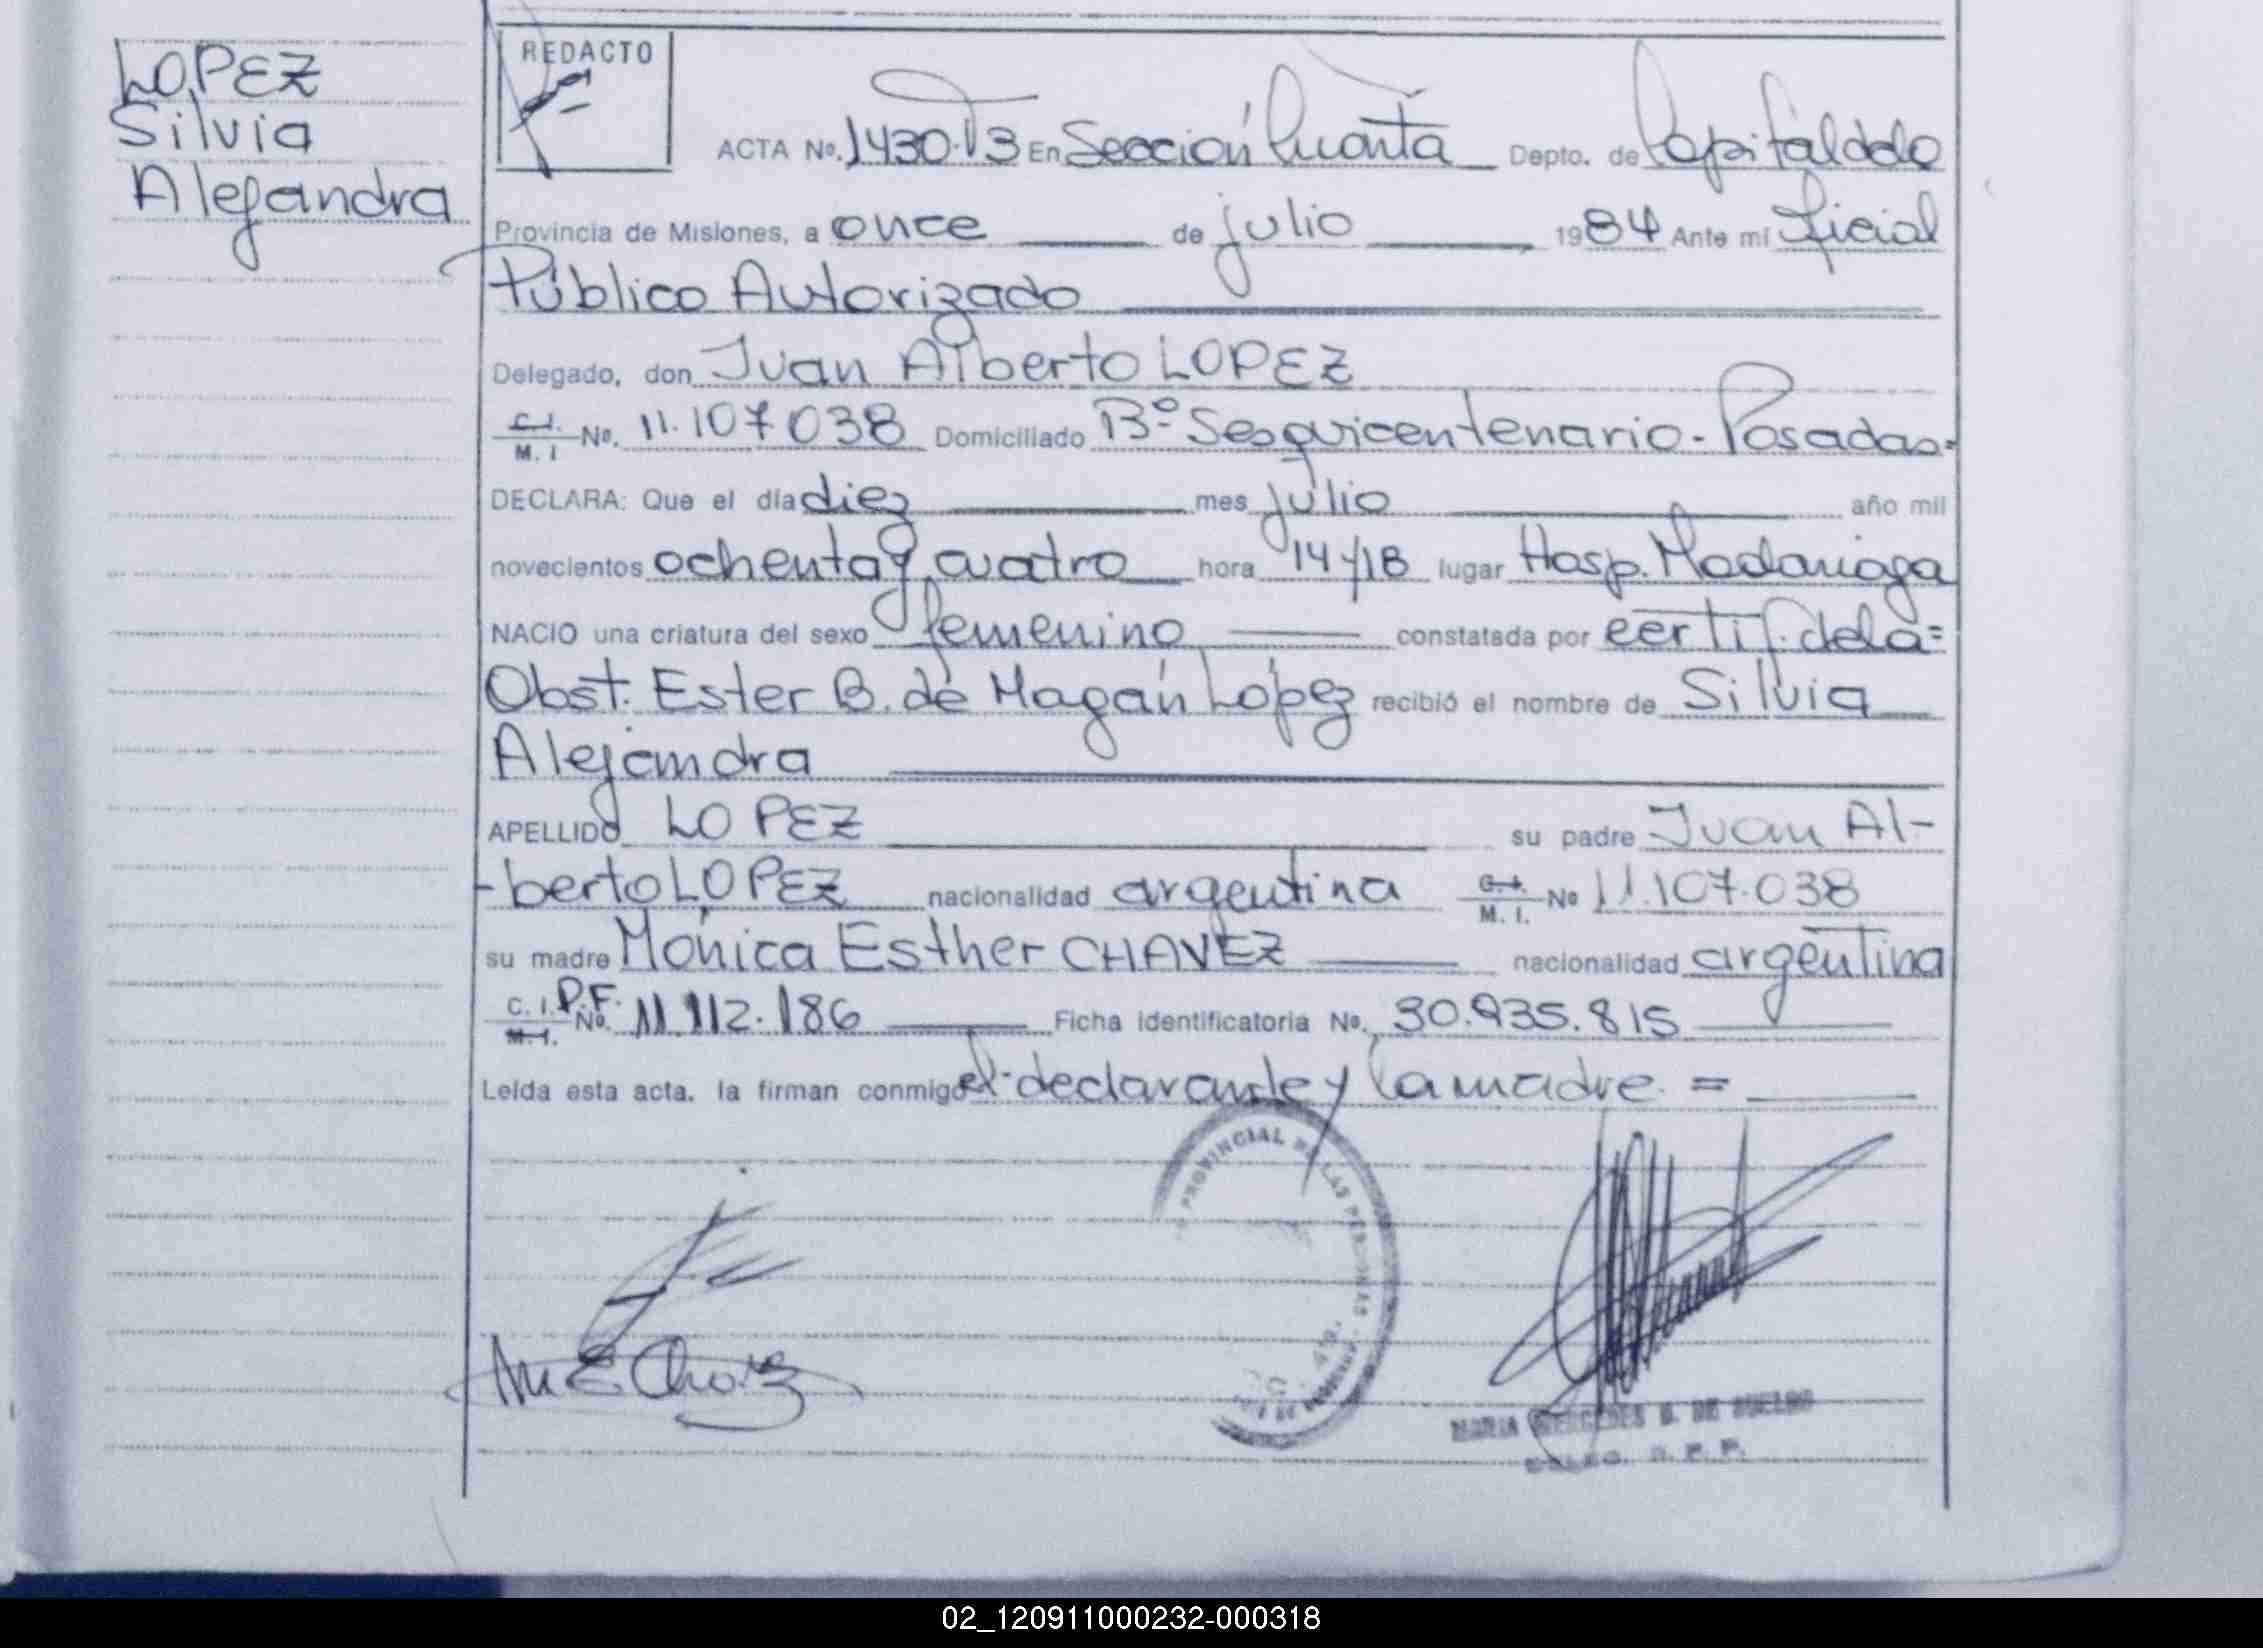 LOPEZ
Silvia
Alejandra
REDACTO
ACTA Nº. 1430. T3 En Sección Cuarta Depto. de Capital de la
Provincia de Misiones, a once de julio 1984 Ante mí Oficial
Público Autorizado
Delegado, don Juan Alberto LOPEZ
C.I. M. I Nº. 11.107.038 Domiciliado Bº Sesquicentenario - Posadas =
DECLARA: Que el día diez mes julio año mil
novecientos ochenta y cuatro hora 14/18 lugar Hosp. Madariaga
NACIO una criatura del sexo femenino constatada por certif. de la =
Obst. Ester B. de Magán López recibió el nombre de Silvia
Alejandra
APELLIDO LOPEZ su padre Juan Al-
-berto LOPEZ nacionalidad argentina C.I. M. I. Nº 11.107.038
su madre Mónica Esther CHAVEZ nacionalidad argentina
C. I. P.F. M.I. Nº. 11.112.186 Ficha identificatoria Nº. 30.935.815
Leída esta acta. la firman conmigo el declarante y la madre. =
PROVINCIAL DE LAS PERSONAS
M E Chavez
MARIA MERCEDES B. DE
02_120911000232-000318